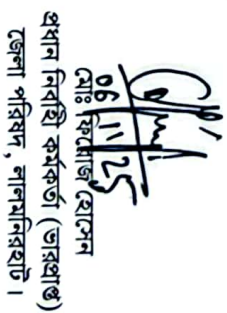 06/11/25
মোঃ ফিরোজ হোসেন
প্রধান নির্বাহী কর্মকর্তা (ভারপ্রাপ্ত)
জেলা পরিষদ, লালমনিরহাট।